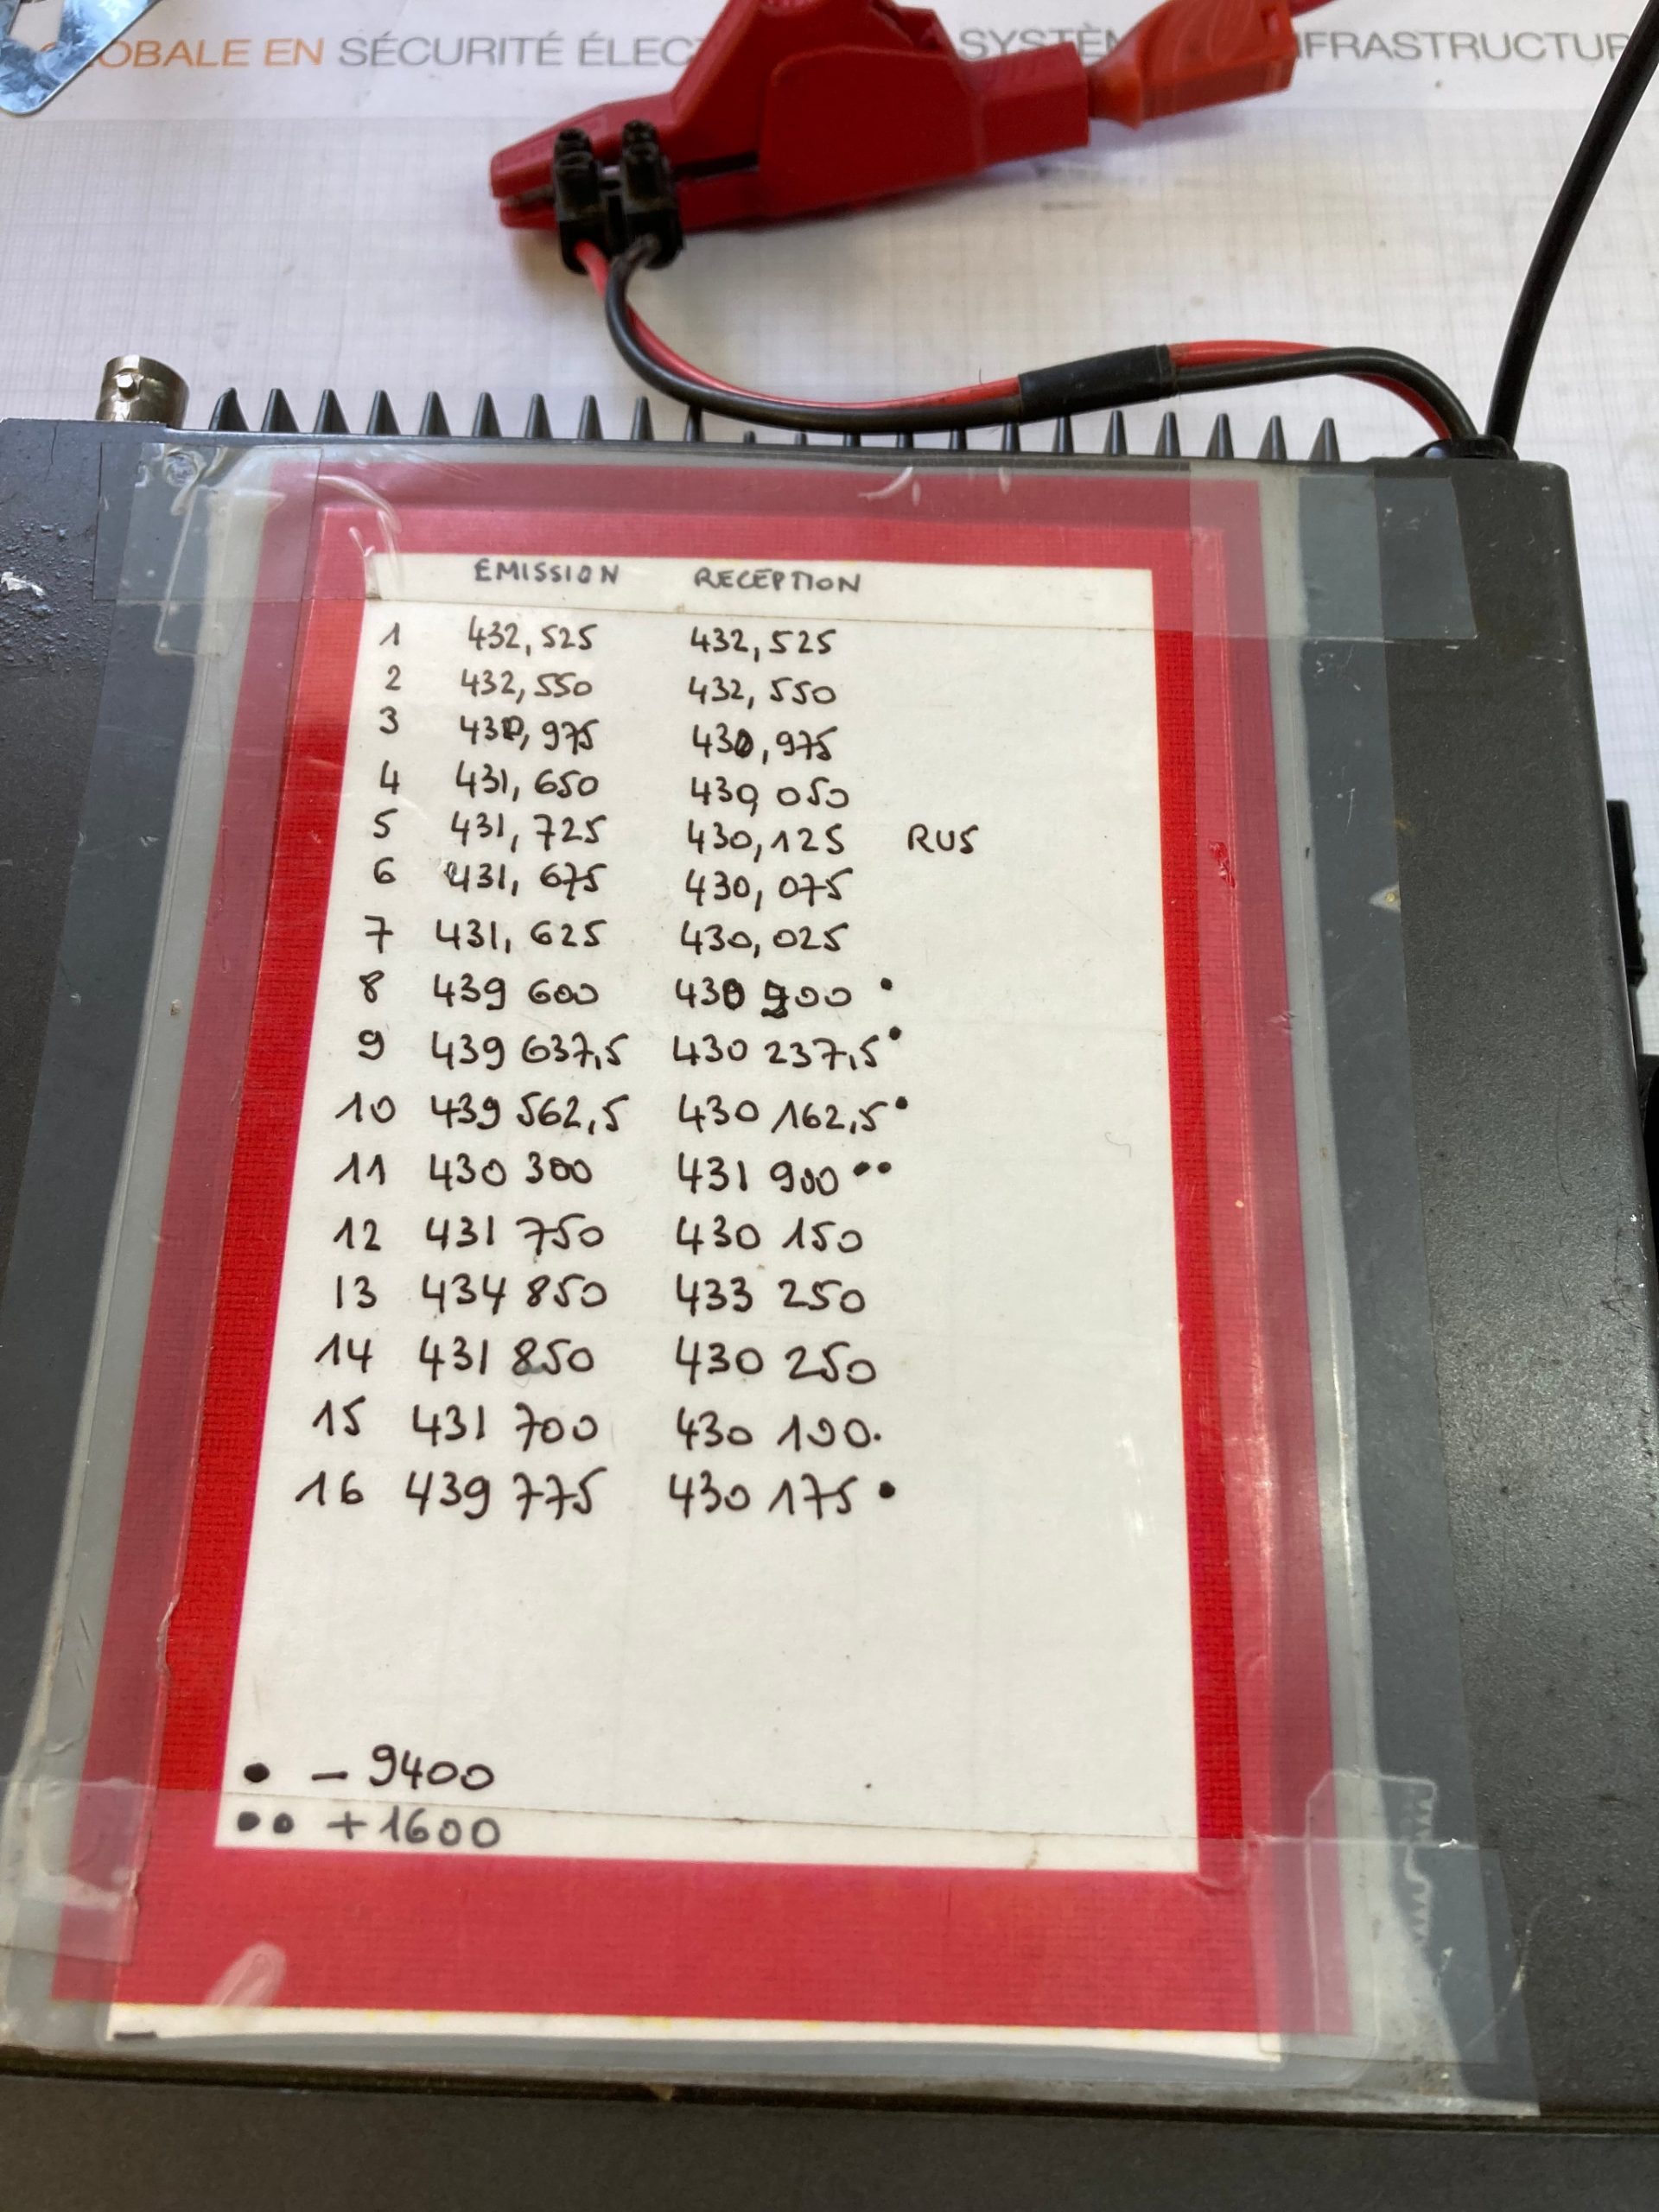 OBALE EN SÉCURITÉ ÉLEC SYSTÈM FRASTRUCTUR
EMISSION RECEPTION
1 432,525 432,525
2 432,550 432,550
3 430,975 430,975
4 431,650 430 050
5 431,725 430,125 RU5
6 431,675 430,075
7 431,625 430,025
8 439 600 430 200 •
9 439 637,5 430 237,5 •
10 439 562,5 430 162,5 •
11 430 300 431 900 ••
12 431 750 430 150
13 434 850 433 250
14 431 850 430 250
15 431 700 430 100.
16 439 775 430 175 •
• - 9400
•• + 1600